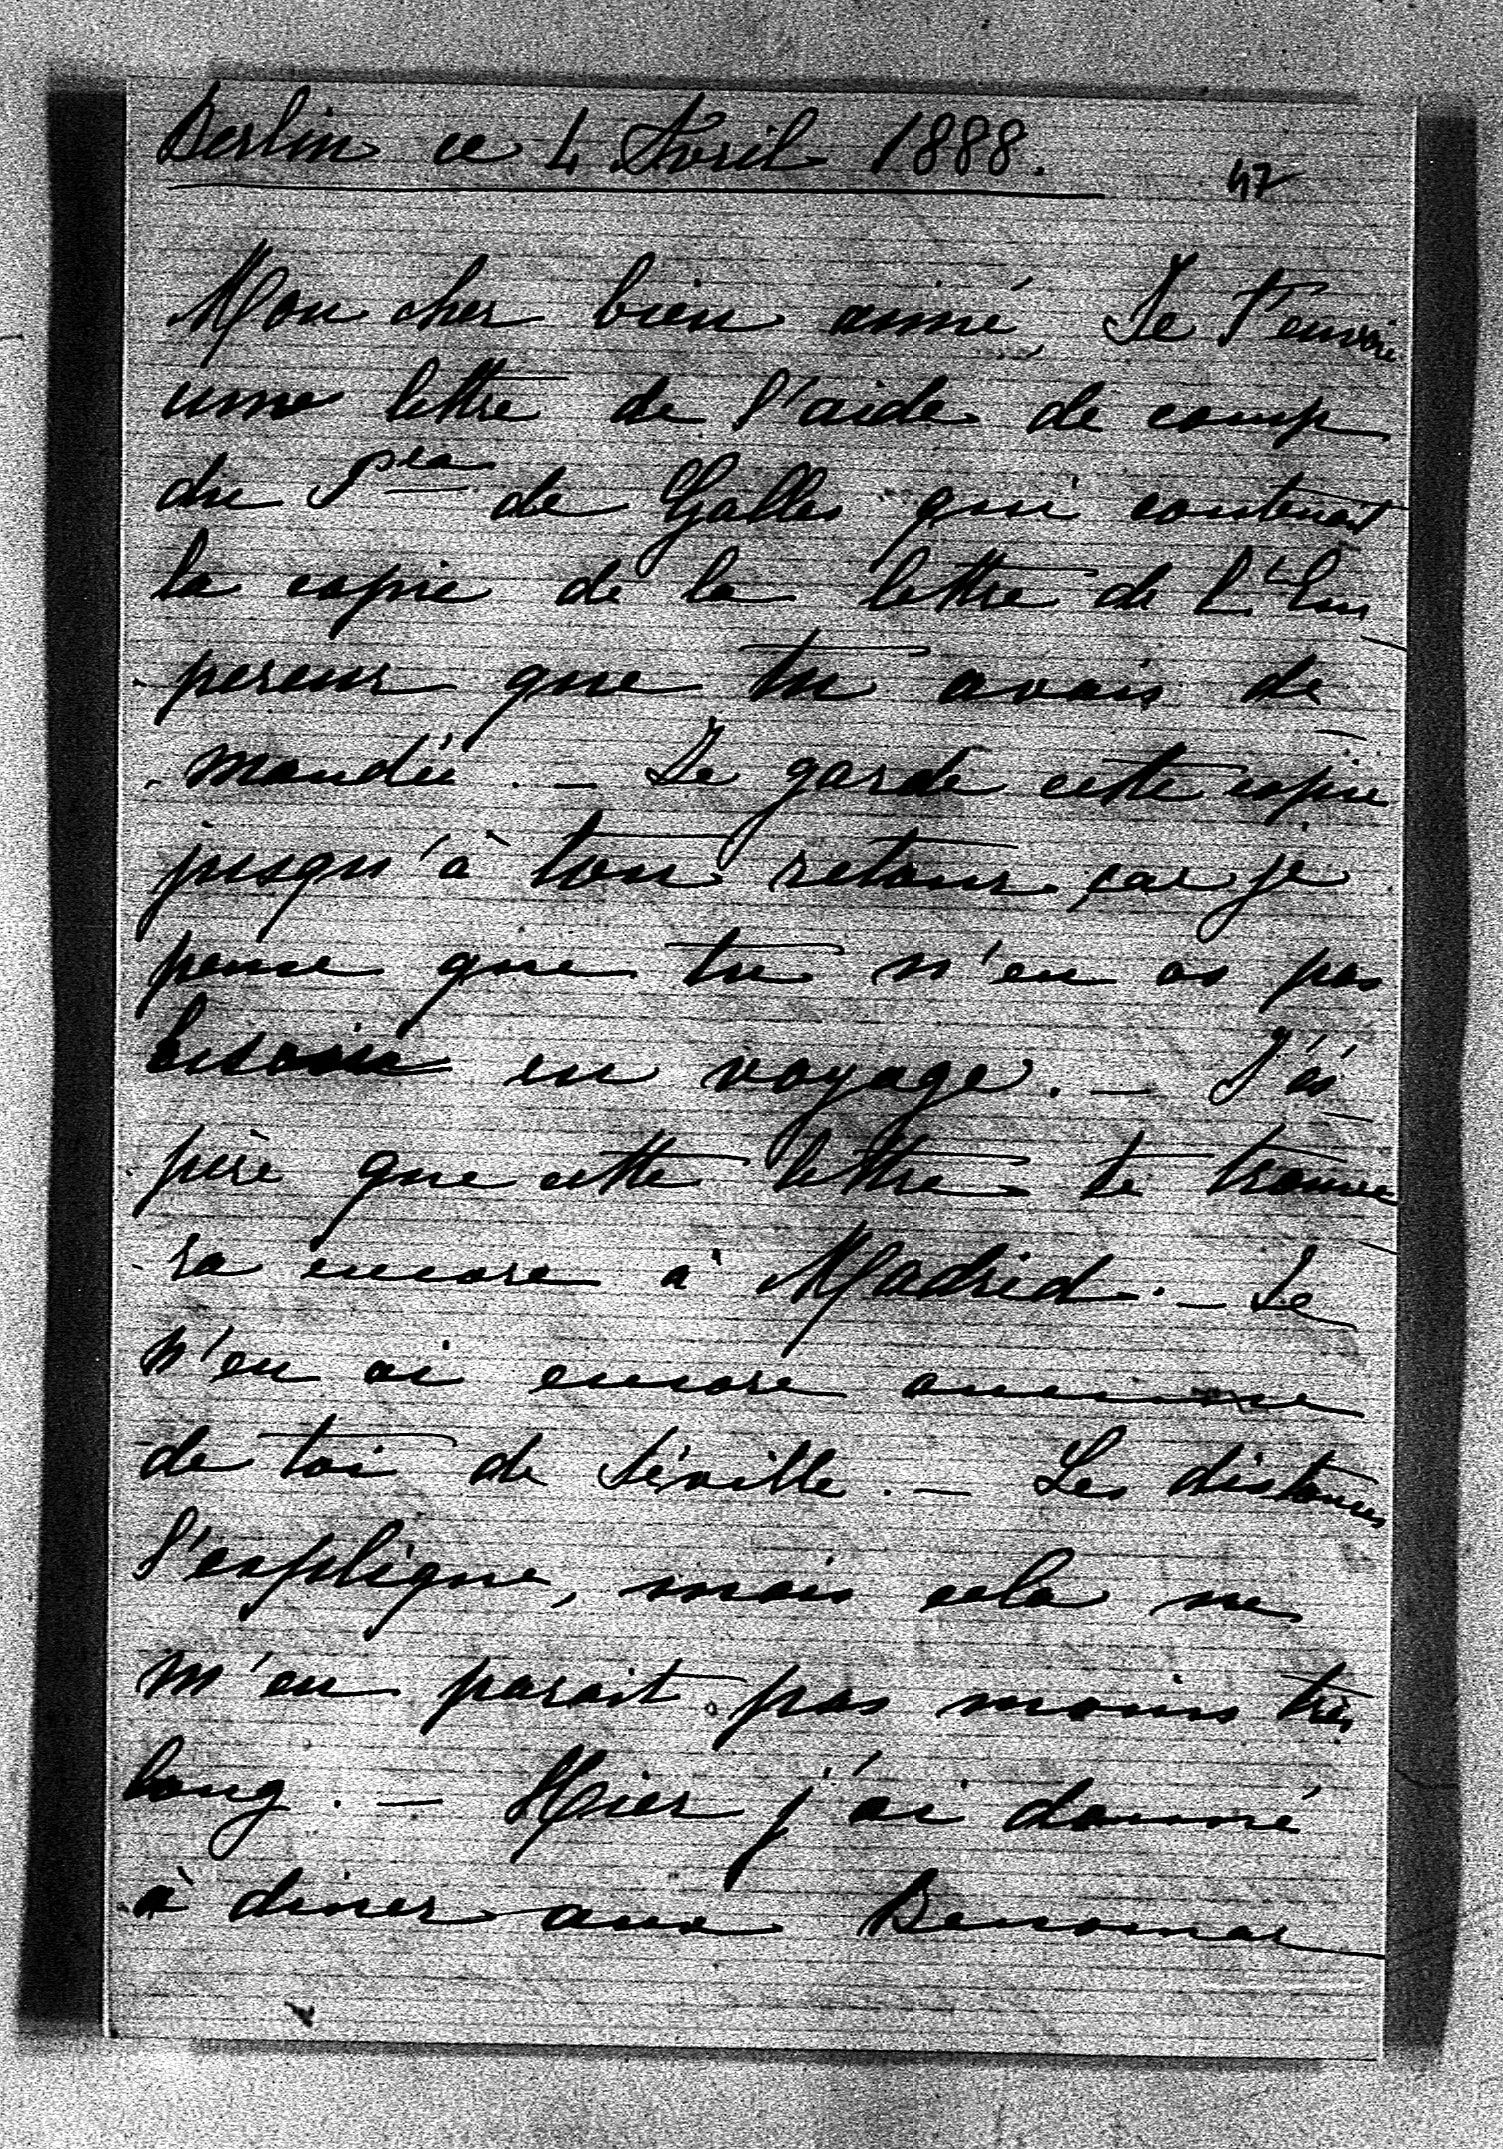 Berlin ce 4 Avril 1888.
47
Mon cher bien aimé, Je t'envoie
une lettre de l'aide de camp
du Pce de Galles qui contenait
la copie de la lettre de L'Em
pereur que tu avais de
mandée. — Je garde cette copie
jusqu'à ton retour, car je
pense que tu n'en as pas
besoin en voyage. — J'es
père que cette lettre te trouve
ra encore à Madrid. — Je
n'en ai encore aucune
de toi de Séville. — Les distances
l'explique, mais cela ne
m'en parait pas moins très
long. — Hier j'ai donné
à diner aux Benomar